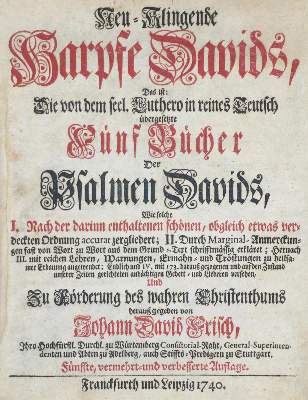 Neu-Klingende
Harpfe Davids,
Das ist:
Die von dem seel. Luthero in reines Teutsch
übergesetzte
Fünf Bücher
Der
Psalmen Davids,
Wie solche
I. Nach der darinn enthaltenen schönen, obgleich etwas ver-
deckten Ordnung accurat zergliedert; II. Durch Marginal-Anmerckun-
gen fast von Wort zu Wort aus dem Grund-Text schrifftmässig erkläret; Hernach
III. mit reichen Lehren, Warnungen, Ermahn- und Tröstungen zu heilsa-
mer Erbauung angewendet; Endlich und IV. mit 173. daraus gezogenen und auf den Zustand
unserer Zeiten gerichteten andächtigen Gebett- und Liederen versehen,
Und
Zu Förderung des wahren Christenthums
heraus gegeben von
Johann David Frisch,
Ihro Hochfürstl. Durchl. zu Würtemberg Consistorial-Raht, General-Superinten-
denten und Abten zu Adelberg, auch Stiffts-Predigern zu Stuttgart.
Fünffte, vermehrt- und verbesserte Auflage.
Franckfurth und Leipzig 1740.